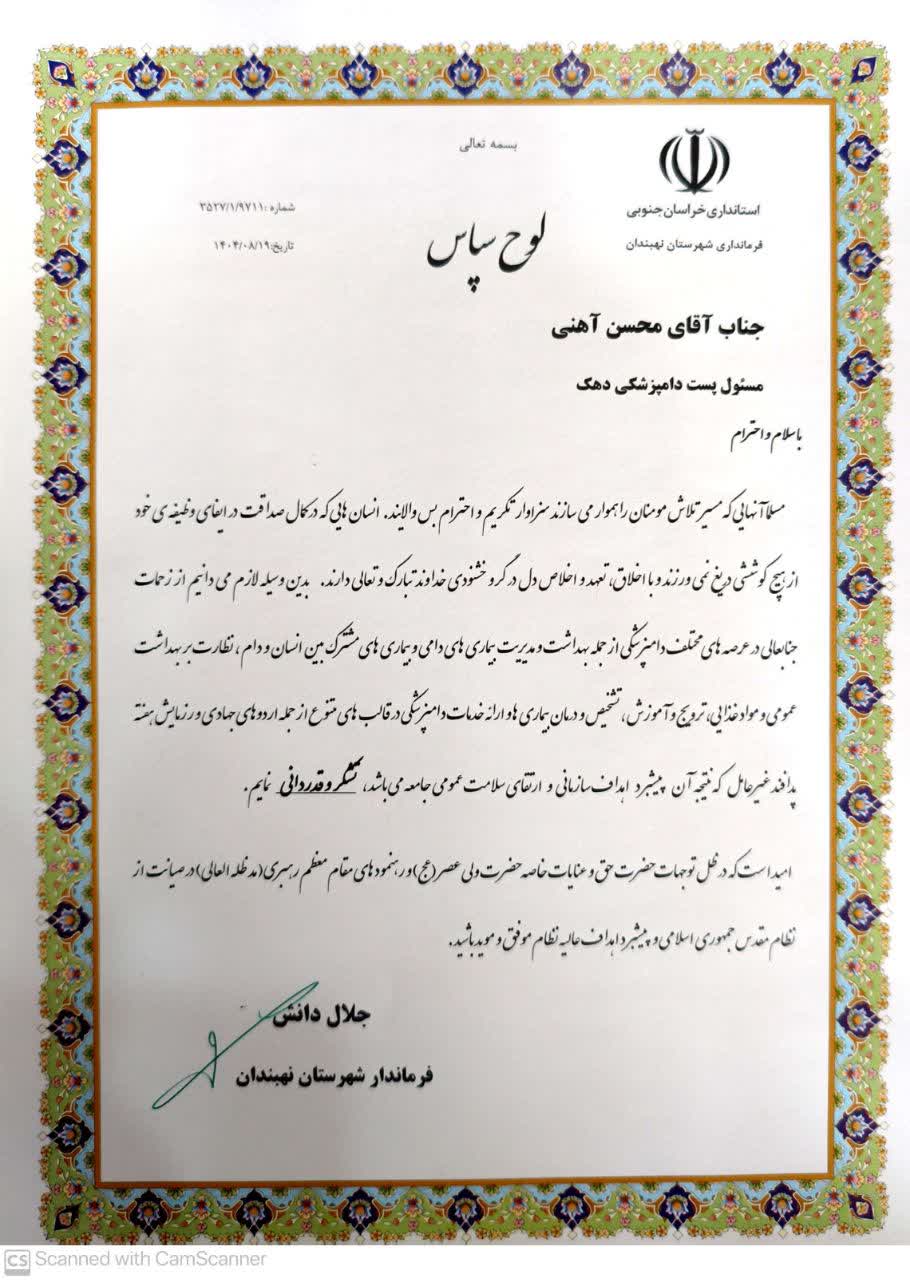 بسمه تعالی
استانداری خراسان جنوبی
فرمانداری شهرستان نهبندان
شماره :۳۵۲۷/۱/۹۷۱۱
تاریخ:۱۴۰۴/۰۸/۱۹
لوح سپاس
جناب آقای محسن آهنی
مسئول پست دامپزشکی دهک
باسلام و احترام
مسلما آنهایی که مسیر تلاش مومنان را هموار می سازند سزاوار تکریم و احترام بس والایند. انسان هایی که در کمال صداقت در ایفای وظیفه ی خود
از هیچ کوششی دریغ نمی ورزند و با اخلاق، تعهد و اخلاص دل در گرو خشنودی خداوند تبارک و تعالی دارند. بدین وسیله لازم می دانیم از زحمات
جنابعالی در عرصه های مختلف دامپزشکی از جمله بهداشت و مدیریت بیماری های دامی و بیماری های مشترک بین انسان و دام ، نظارت بر بهداشت
عمومی و مواد غذایی، ترویج و آموزش ، تشخیص و درمان بیماری ها و ارائه خدمات دامپزشکی در قالب های متنوع از جمله اردوهای جهادی و رزمایش هفته
پدافند غیرعامل که نتیجه آن پیشبرد اهداف سازمانی و ارتقای سلامت عمومی جامعه می باشد، تشکر و قدردانی نمایم.
امید است که در ظل توجهات حضرت حق و عنایات خاصه حضرت ولی عصر(عج)و رهنمودهای مقام معظم رهبری(مد ظله العالی)در صیانت از
نظام مقدس جمهوری اسلامی و پیشبرد اهداف عالیه نظام موفق و موید باشید.
جلال دانش
فرماندار شهرستان نهبندان
CS Scanned with CamScanner